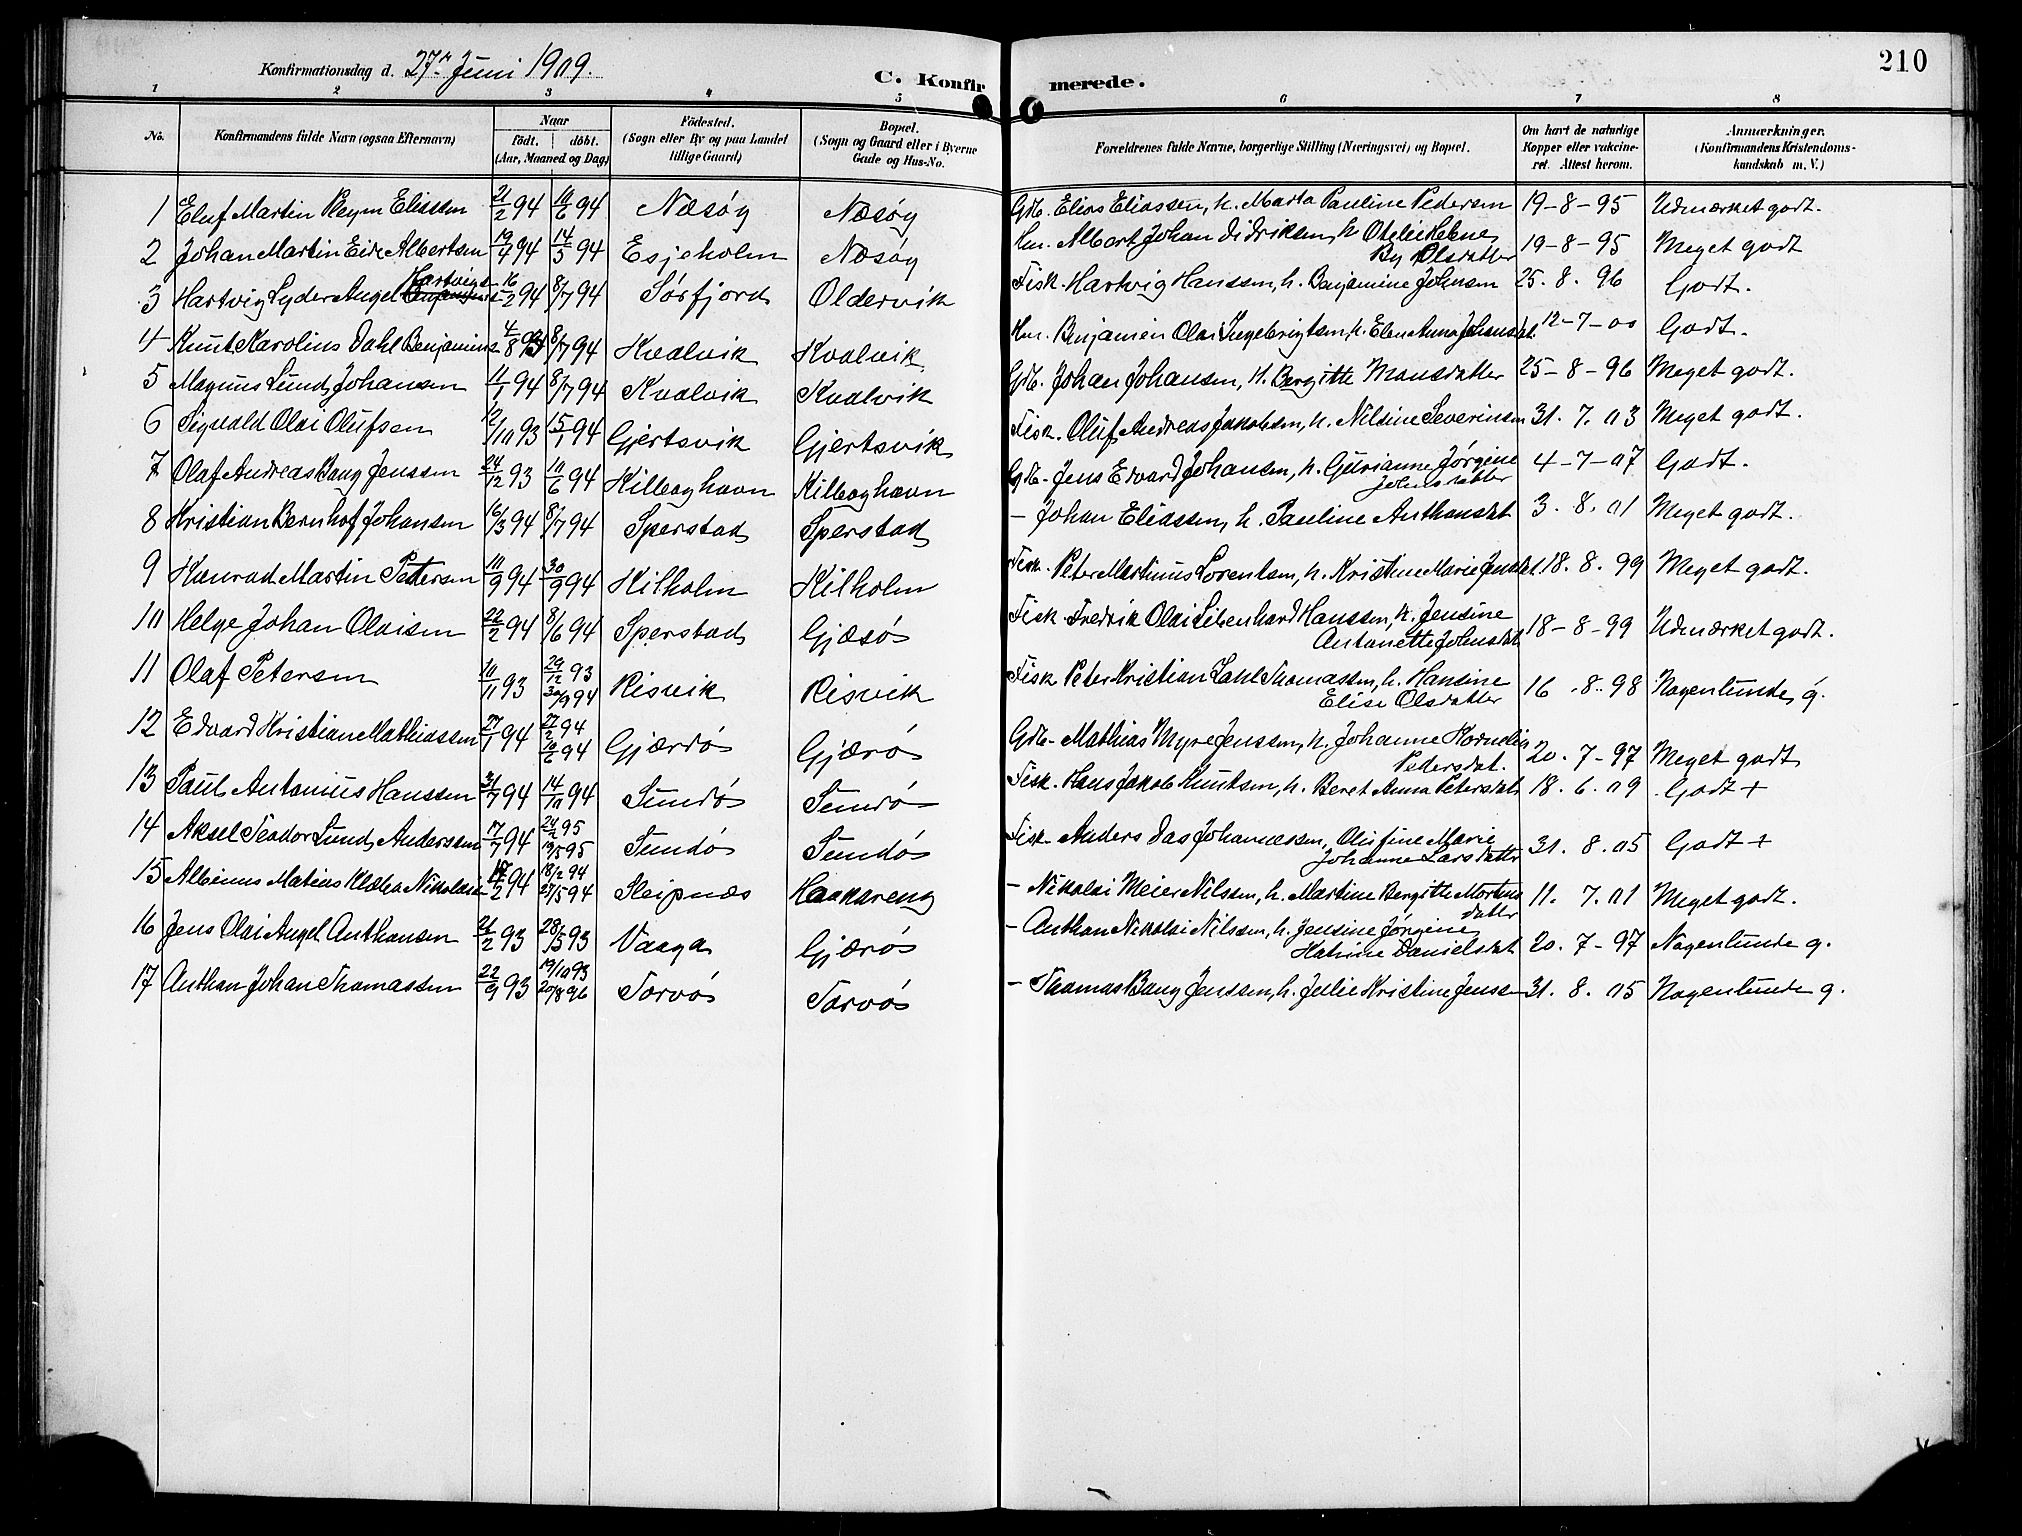 210
Konfirmationsdag d. 27de Juni 1909.
C. Konfirmerede.
1 2 3 4 5 6 7 8
No.
Konfirmandens fulde Navn (ogsaa Efternavn)
Naar
födt. döbt.
(Aar, Maaned og Dag)
Födested.
(Sogn eller By og paa Landet
tillige Gaard)
Bopæl.
(Sogn og Gaard eller i Byerne
Gade og Hus-No.
Forældrenes fulde Navne, borgerlige Stilling (Næringsvei) og Bopæl.
Om havt de naturlige
Kopper eller vakcine-
ret. Attest herom.
Anmærkninger.
(Konfirmandens Kristendoms-
kundskab m. V.)
1 Eluf Martin Eliassen 21/2 94 10/6 94 Næsöy Næsöy Gdb. Elias Eliassen, h. Marta Pauline Pedersen 19-8-95 Udmærket godt.
2 Johan Martin Albertsen 19/4 94 14/5 94 Esjeholm Næsöy Hm. Albert Johan Didriksen, h. Otelie Helene
By Olsdatter 19-8-95 Meget godt
3 Hartvig Lyder Angel Hartvigs. 16/2 94 8/7 94 Sörfjord Oldervik Fisk. Hartvig Hanssen, h. Benjamine Johnsen 25.8.96 Godt.
4 Knut Karolius Dahl Benjamins. 4/8 93 8/7 94 Kvalvik Kvalvik Hm. Benjamin Olai Ingebrigtsen, h. Elen Anna Johansdat. 12-7-00 Godt.
5 Magnus Lund Johansen 11/1 94 8/7 94 Kvalvik Kvalvik Gdb. Johan Johansen, h. Bergitte Monsdatter 25-8-96 Meget godt.
6 Sigvald Olai Olufsen 12/10 93 15/1 94 Gjertsvik Gjertsvik Fisk. Oluf Andreas Jakobsen, h. Nilsine Severinsen 31.7.03 Meget godt.
7 Olaf Andreas Bang Jenssen 24/12 93 10/6 94 Kilboghavn Kilboghavn Gdb. Jens Edvard Johansen, h. Gurianne Jörgine
Johnsdatter 4-7-07 Godt.
8 Kristian Bernhof Johansen 16/3 94 8/7 94 Sperstad Sperstad - Johan Eliassen, h. Pauline Anthonsdat 3.8.01 Meget godt.
9 Konrad Martin Petersen 10/9 94 30/9 94 Kilholm Kilholm Fisk. Peter Martinus Lorentsen, h. Kristine Marie Jensdat. 18.8.99 Meget godt.
10 Helge Johan Olaisen 22/2 94 8/6 94 Sperstad Gjæsö Fisk. Fredrik Olai Hanssen, h. Jensine
Antonette Johnsdat 18-8-99 Udmærket godt.
11 Olaf Petersen 10/11 93 29/12 93 Risvik Risvik Fisk Peter Kristian Dahl Thomassen, h. Hansine
30/9 94 Elise Olsdatter 16.8.98 Nogenlunde g.
12 Edvard Kristian Mathiassen 27/1 94 22/2 94 Gjærdö Gjærö Gdb. Mathias Myre Jenssen, h. Johanne Kornelia
10/6 94 Pedersdat. 20.7-97 Meget godt
13 Paul Antonius Hanssen 31/7 94 14/10 94 Sundö Sundö Fisk. Hans Jakob Knutsen, h. Beret Anna Petersdat 18.6.09 Godt +
14 Aksel Teodor Lund Anderssen 17/7 94 24/2 95 Sundö Sundö Fisk. Anders Das Johannessen, Olufine Marie
19/5 95 Johanne Larsdatter 31.8.05 Godt +
15 Albinus Matius Nikolais. 17/2 94 18/2 94 Sleipnæs Haakareng - Nikolai Meier Nilssen, h. Martine Bergitte Mortens
27/5 94 datter 11.7.01 Meget godt.
16 Jens Olai Angel Anthonsen 21/2 93 28/5 93 Vaaga Gjærö - Anthon Nikolai Nilssen, h. Jensine Jörgine
Katrine Danielsdat 20.7-97 Nogenlunde g.
17 Anthon Johan Thomassen 22/9 93 19/10 93 Torvö Torvö - Thomas Bang Jenssen, h. Julie Kristine Jenssen 31.8.05 Nogenlunde g.
20/8 96